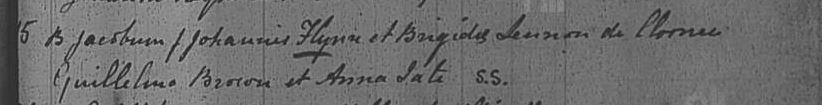 15 B Jacobum f Johannis Flynn et Brigidæ Lennon de Cloonee
Guillelmo Brown et Anna Tate s.s.